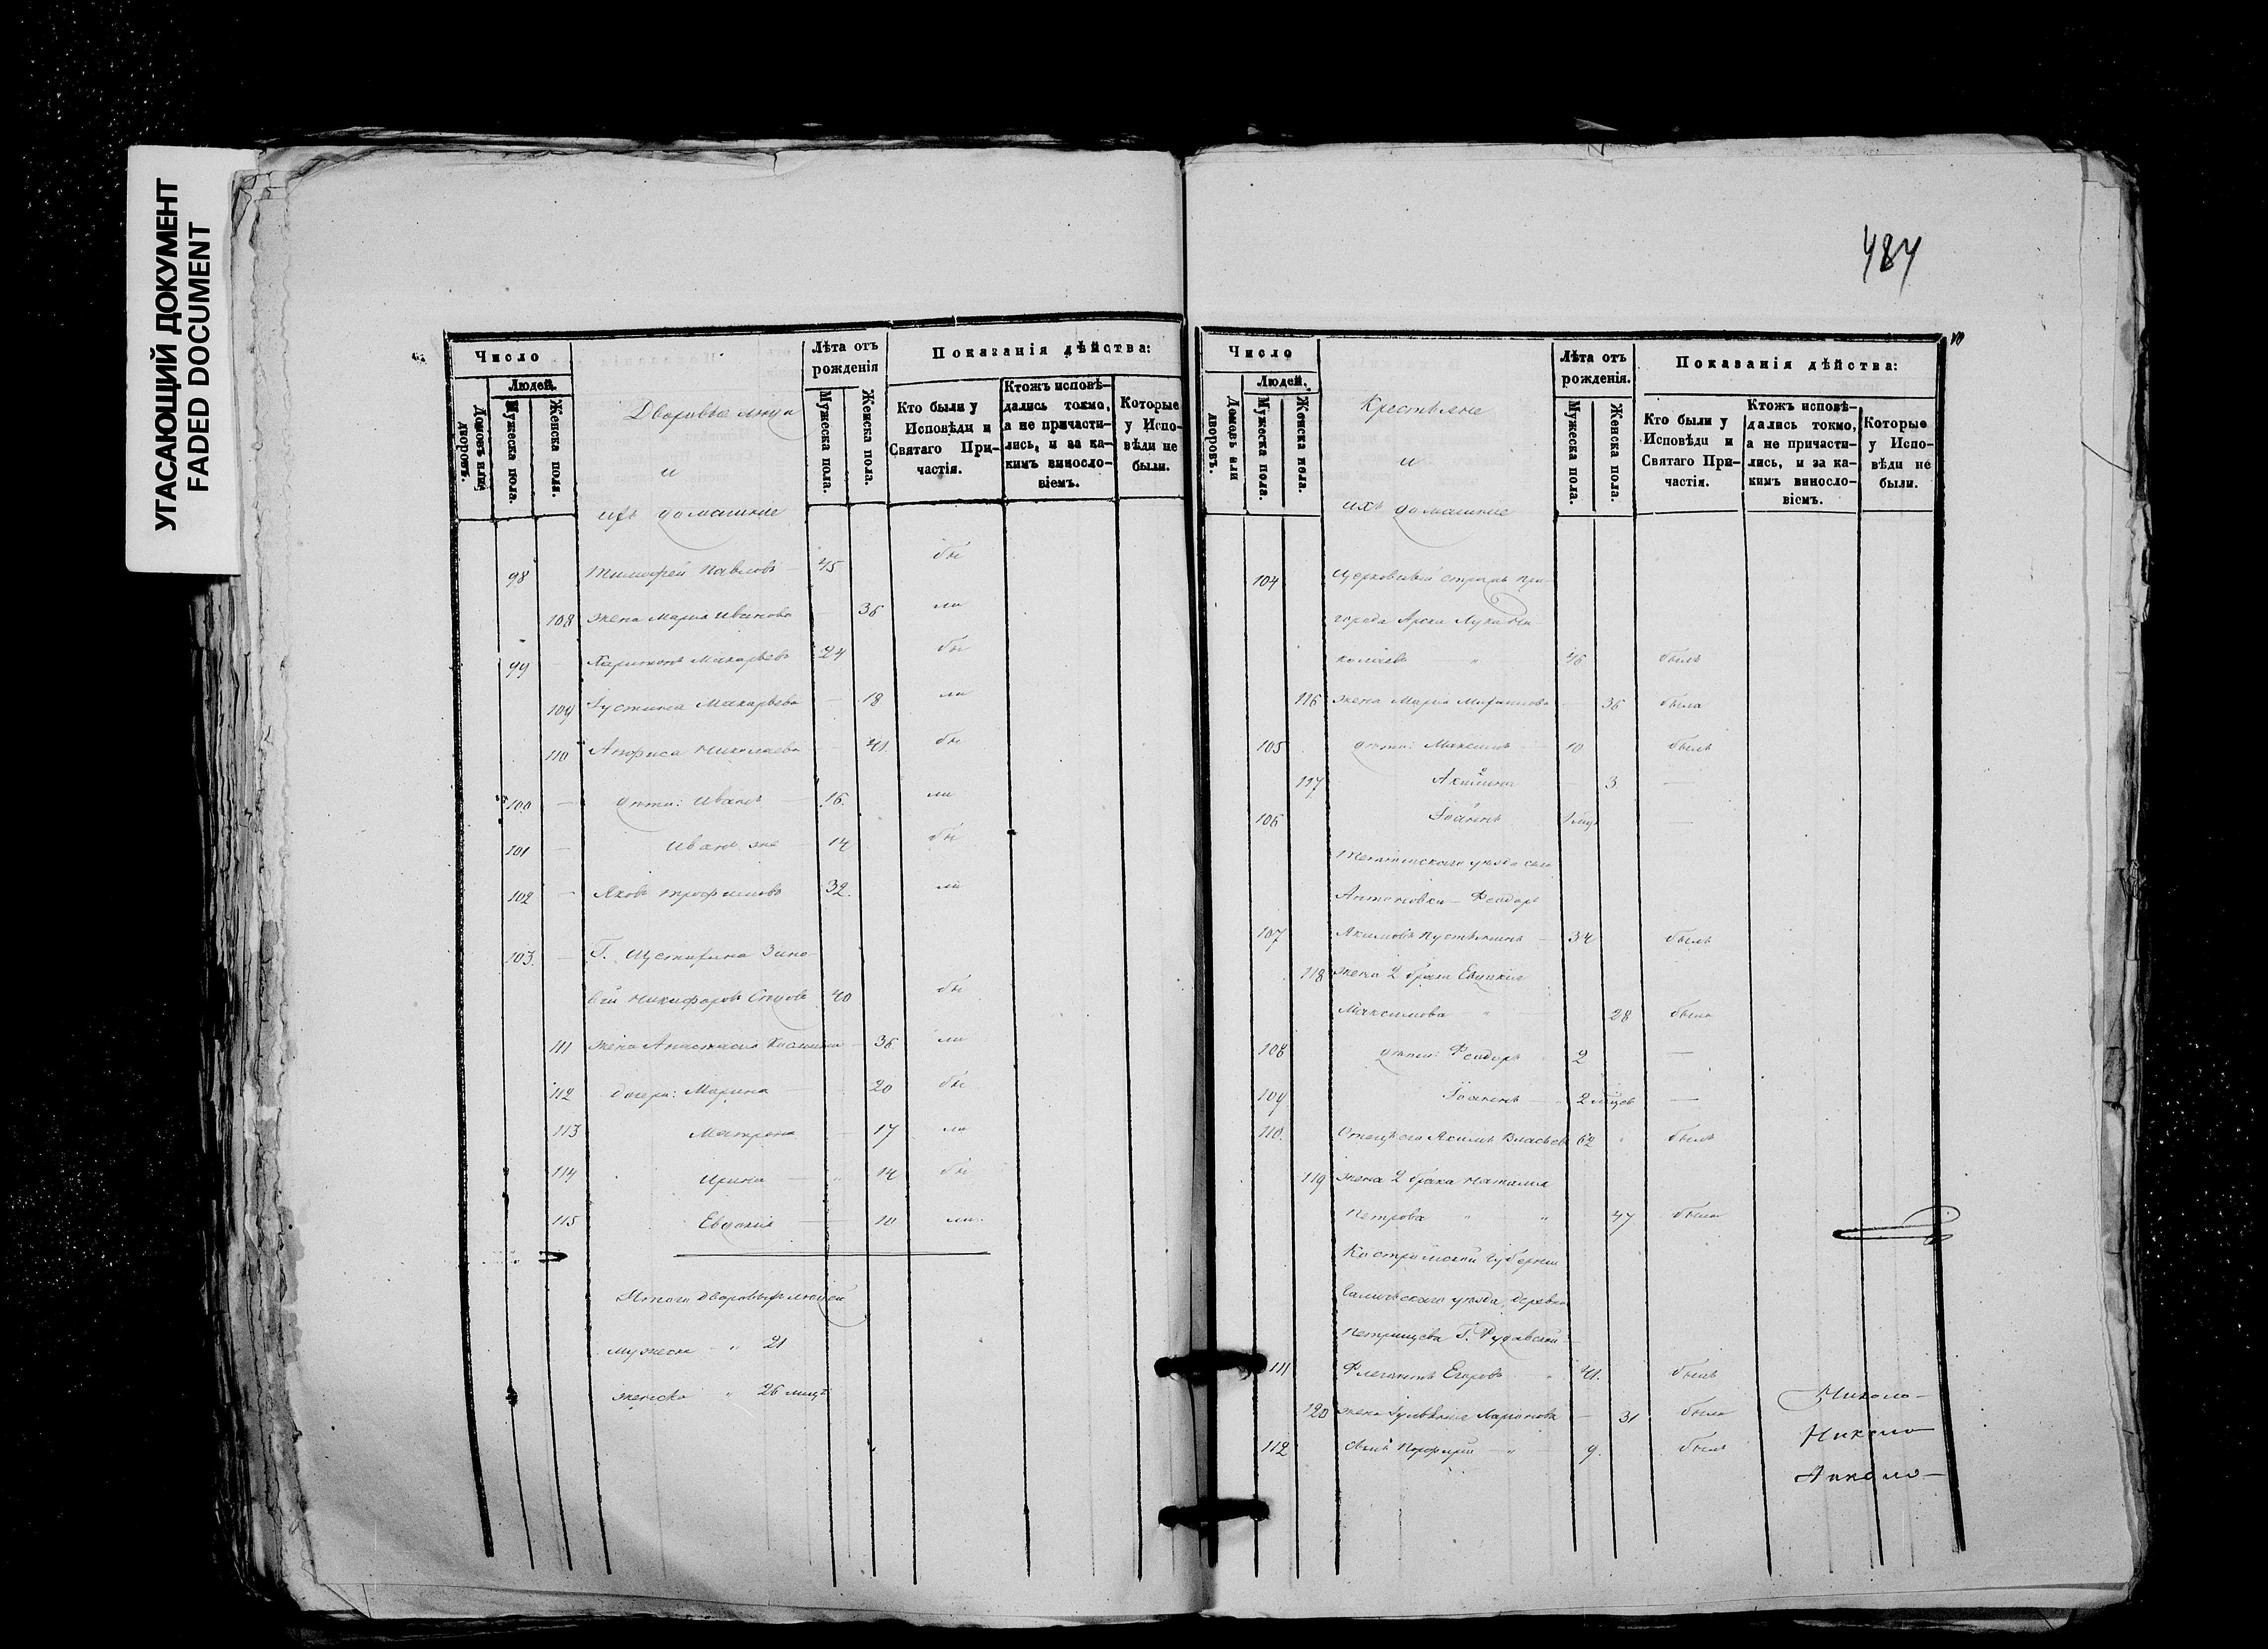 УГАСАЮЩИЙ ДОКУМЕНТ
FADED DOCUMENT
Число
Людей.
Домовъ или дворовъ.
Мужеска пола.
Женска пола.
Дворовые люди
и
ихъ домашние
Лѣта отъ рожденія
Мужеска пола.
Женска пола.
Показанія дѣйства:
Кто были у Исповѣди и Святаго Причастія.
Ктожъ исповѣдались токмо, а не причастились, и за какимъ винословіемъ.
Которые у Исповѣди не были.
98 Тимофей Павловъ 45 бы
108 жена Марія Иванова 36 ли
99 Харитонъ Макарьевъ 24 бы
109 Іустина Макарьева 18 ли
110 Анфиса Николаева 41. бы
100 дѣти: Иванъ 16. ли
101 Иванъ же 14 бы
102 Яковъ Трофимовъ 32. ли
103. Г. Зино-
вій Никифоровъ 40 бы
111 жена Анастасія 36. ли
112 дочери: Марина 20 бы
113 Матрона 17 ли
114 Ирина 14 бы
115 Евдокія 10 ли.
Итого дворовыхъ людей
мужеска " 21
женска " 26 лицъ
484
Число
Людей.
Домовъ или дворовъ.
Мужеска пола.
Женска пола.
Крестьяне
и
ихъ домашние
Лѣта отъ рожденія.
Мужеска пола.
Женска пола.
Показанія дѣйства:
Кто были у Исповѣди и Святаго Причастія.
Ктожъ исповѣдались токмо, а не причастились, и за какимъ винословіемъ.
Которые у Исповѣди не были.
104 Церковный При-
города Арска Лука Ни-
колаевъ " 46 былъ
116 жена Марія 36 была
105 дѣти: Максимъ 10 былъ
117 Акилина 3 —
106 Іоаннъ —
уѣзда села
Антоновки — Феодоръ
107 Акимовъ 34 былъ
118 жена 2 брака Евдокія
Максимова " 28 была
108 дѣти: Феодоръ 2 —
109 Іоаннъ 2 —
110. Отецъ его Акимъ Власьевъ 62 былъ
119 жена 2 брака Наталія
Петрова " " 47 была
Костромской губерніи
Галичьскаго уѣзда, деревни
Г.
111 Флегонтъ Егоровъ 41. былъ
120 жена Іуліанія Ларіонова 31 была
112 сынъ Порфирій " 9. былъ
Николо-
Николо
Николо-